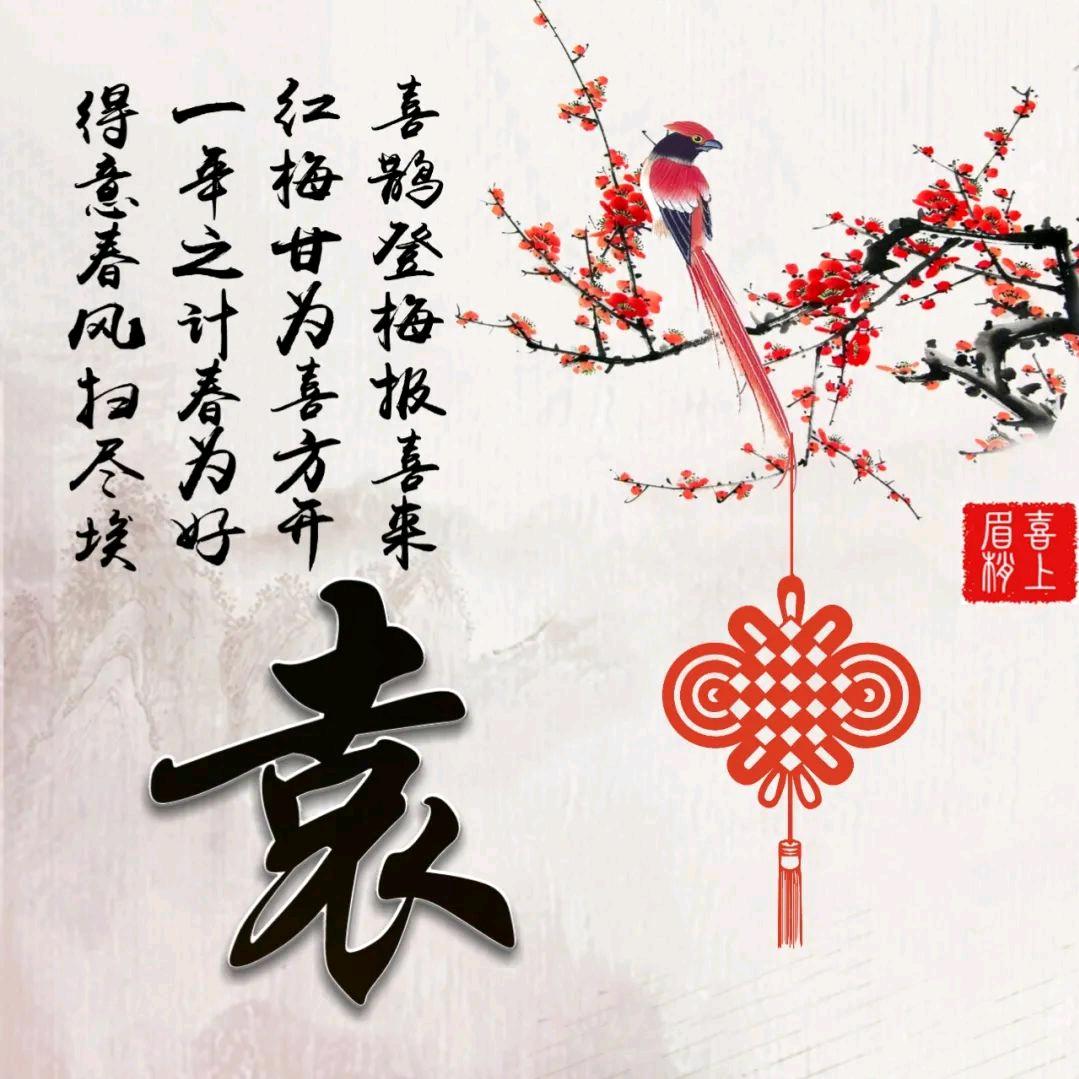 喜鹊登梅报喜来
红梅甘为喜方开
一年之计春为好
得意春风扫尽埃
袁
喜上
眉梢